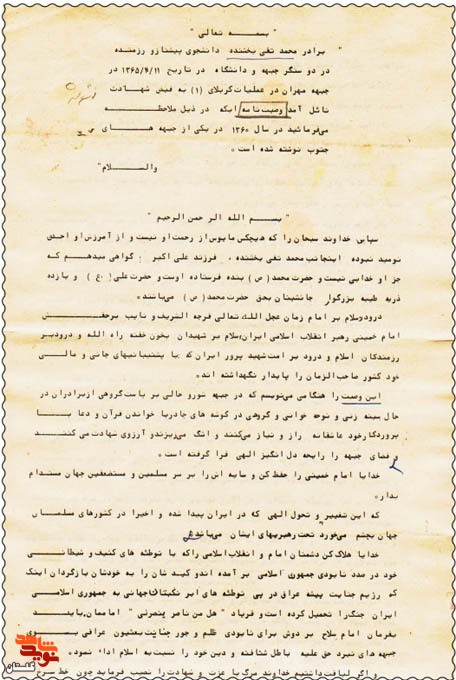 " بسمه تعالی "
" برادر محمد تقی بخشنده دانشجوی پیشتاز و رزمنده
در دو سنگر جبهه و دانشگاه در تاریخ ۱۳۶۵/۴/۱۱ در
جبهه مهران در عملیات کربلای (۱) به فیض شهادت
نائل آمد وصیت نامه ایکه در ذیل ملاحظه
می‌فرمائید در سال ۱۳۶۰ در یکی از جبهه های
جنوب نوشته شده است.
والسلام"
" بسم الله الرحمن الرحیم "
سپاس خداوند سبحان را که هیچکس مایوس از رحمت او نیست و از آمرزش او احدی
نومید نبوده اینجانب محمد تقی بخشنده ، فرزند علی اکبر گواهی میدهم که
جز او خدایی نیست و حضرت محمد (ص) بنده فرستاده اوست و حضرت علی (ع) و یازده
ذریه طیبه بزرگوار جانشینان بحق حضرت محمد (ص) می‌باشند.
درود و سلام بر امام زمان عجل الله تعالی فرجه الشریف و نایب برحقش
امام خمینی رهبر انقلاب اسلامی ایران، سلام بر شهیدان بخون خفته راه الله و درود بر
رزمندگان اسلام و درود بر امت شهید پرور ایران که با پشتیبانیهای جانی و مالی
خود کشور صاحب الزمان را پایدار نگهداشته اند.
این وصیت را هنگامی می‌نویسم که در جبهه شور و حالی بر پاست گروهی از برادران در
حال سینه زنی و نوحه خوانی و گروهی در گوشه های چادر با خواندن قرآن و دعا با
پروردگار خود عاشقانه راز و نیاز می‌کنند و اشک می‌ریزند و آرزوی شهادت می کنند
و فضای جبهه را رایحه دل انگیز الهی فرا گرفته است.
خدایا امام خمینی را حفظ کن و سایه اش را بر سر مسلمین و مستضعفین جهان مستدام
بدار.
که این تغییر و تحول الهی که در ایران پیدا شده و اخیرا در کشورهای مسلمان
جهان بچشم می‌خورد تحت رهبریهای ایشان می‌باشد.
خدایا هلاک کن دشمنان امام و انقلاب اسلامی را که با توطئه های کثیف و شیطانی
خود در صدد نابودی جمهوری اسلامی بر آمده اند و کید شان را به خودشان بازگردان اینک
که رژیم جنایت پیشه عراق در پی توطئه های ابر جنایتکاران جهانی به جمهوری اسلامی
ایران جنگ را تحمیل کرده است و فریاد " هل من ناصر ینصرنی " امام‌مان باید
بفرمان امام سلاح بر دوش برای نابودی ظلم و جور جنایت بعثیون عراقی بسوی
جبهه های نبرد حق علیه باطل شتافته و دین خود را نسبت به اسلام اداء نموده
و اگر لیاقت داشتیم خداوند مرگ با عزت و شهادت را نصیب فرماید چون خط سرخ
نوید شاهد
گلستان